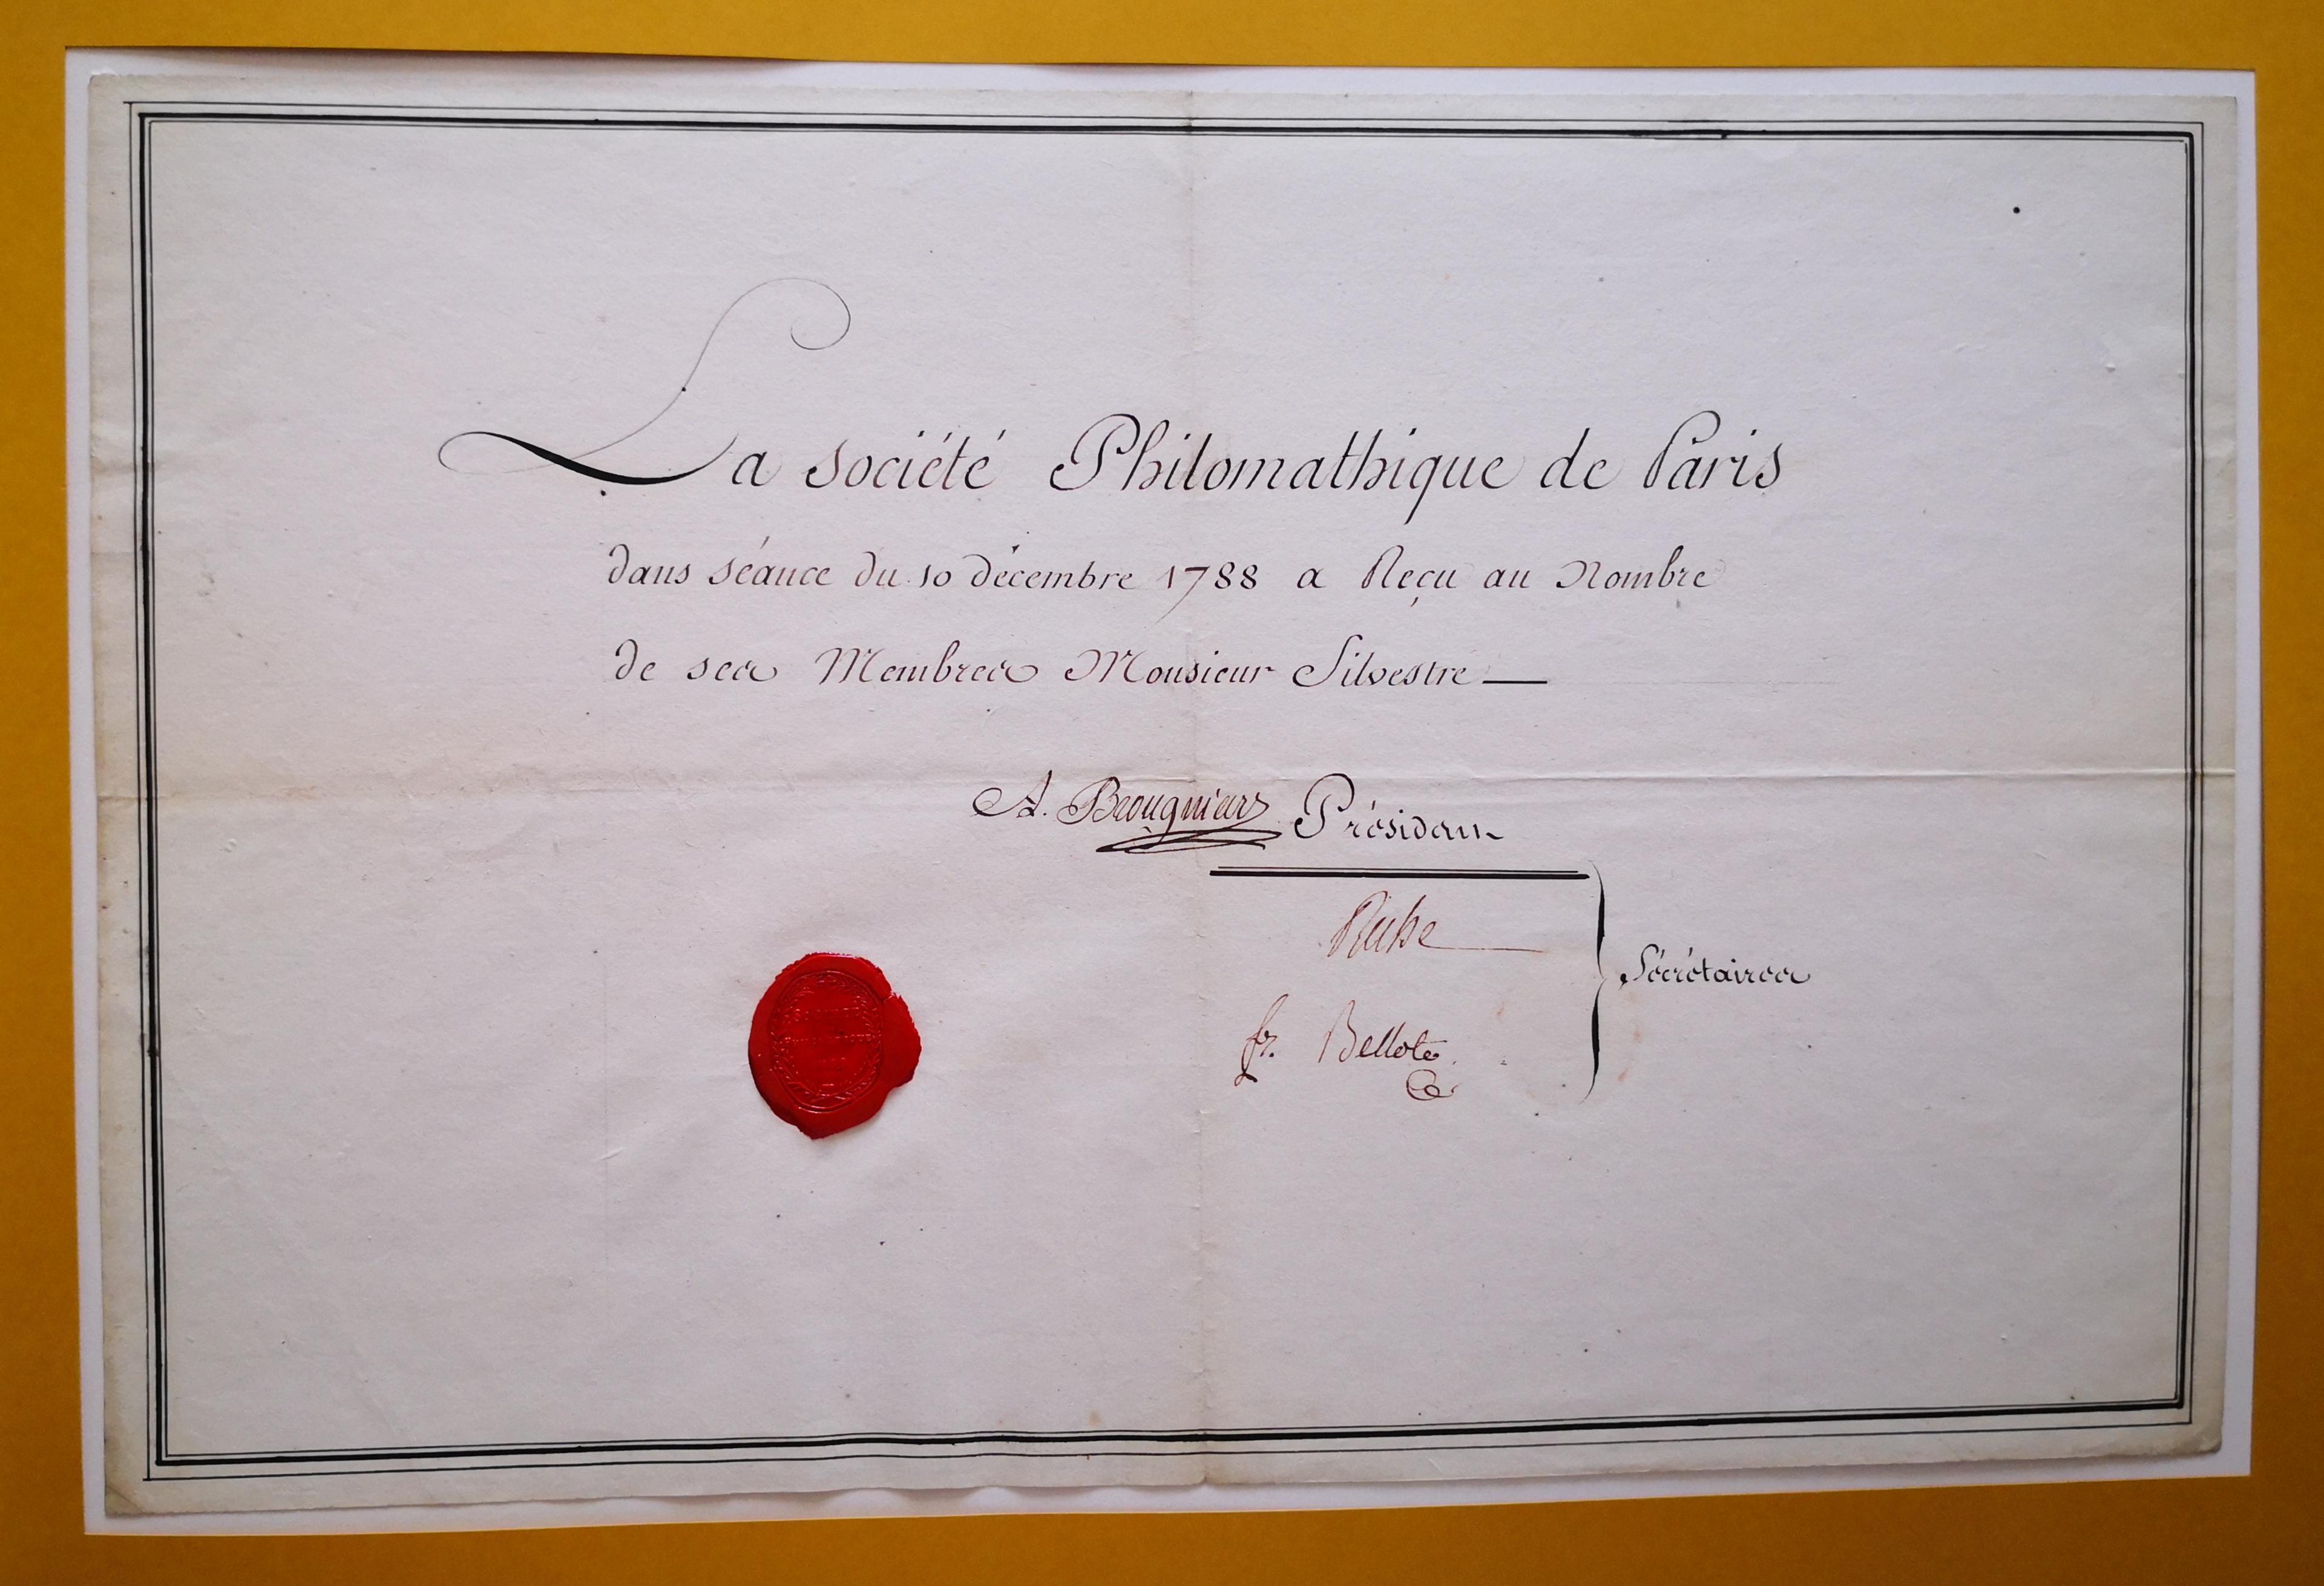 La société Philomathique de Paris
dans séance du 10 décembre 1788 a Reçu au Nombre
de ses Membres Monsieur Silvestre
A. Brougniard Président
Riche
fr. Bellot
Sécrétaires
SOCIETE